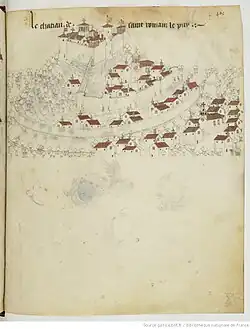 le chastau de saint romain le puy
Source gallica.bnf.fr / Bibliothèque nationale de France